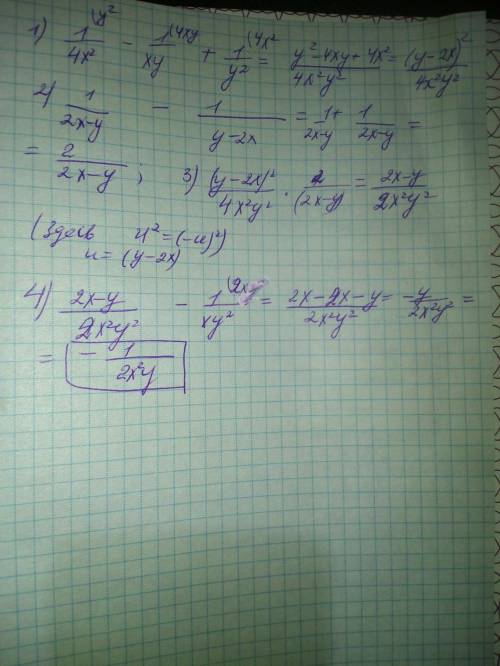 1) 1/4x² (y² - 1/xy (4xy + 1/y² (4x² = (y²-4xy+4x²)/4x²y² = (y-2x)²/4x²y²
2) 1/(2x-y) - 1/(y-2x) = 1/(2x-y) + 1/(2x-y) =
= 2/(2x-y) ; 3) (y-2x)²/4x²y² · 2/(2x-y) = (2x-y)/2x²y²
(Здесь u² = (-u)²)
u = (y-2x)
4) (2x-y)/2x²y² - 1/xy² (2x = (2x-2x-y)/2x²y² = -y/2x²y² =
= - 1/2x²y